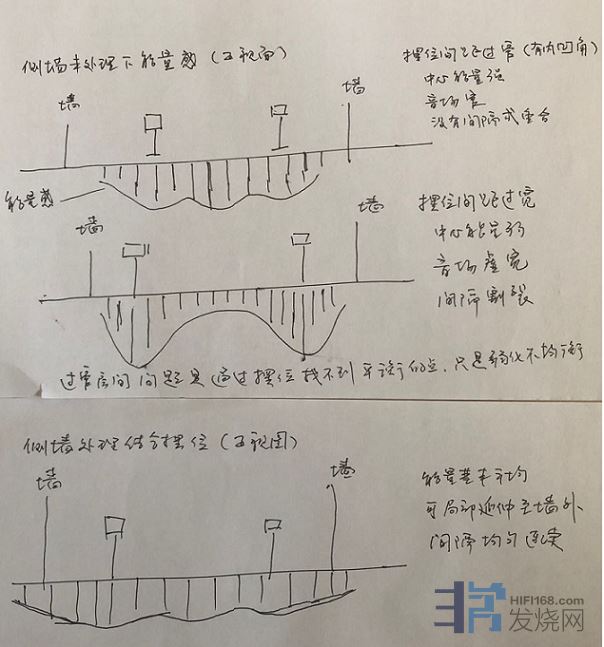 侧墙未处理下能量感（正视面）
摆位间距过窄（有内凹角）
中心能量强
音场窄
没有间隔或重合
墙
墙
能量感
摆位间距过宽
中心能量弱
音场虚宽
间隔割裂
墙
墙
过窄房间问题是通过摆位找不到平衡的点，只是弱化不均衡
侧墙处理结合摆位（正视图）
墙
墙
能量基本平均
可局部延伸至墙外
间隔均匀连续
HIFI168.com
发烧网